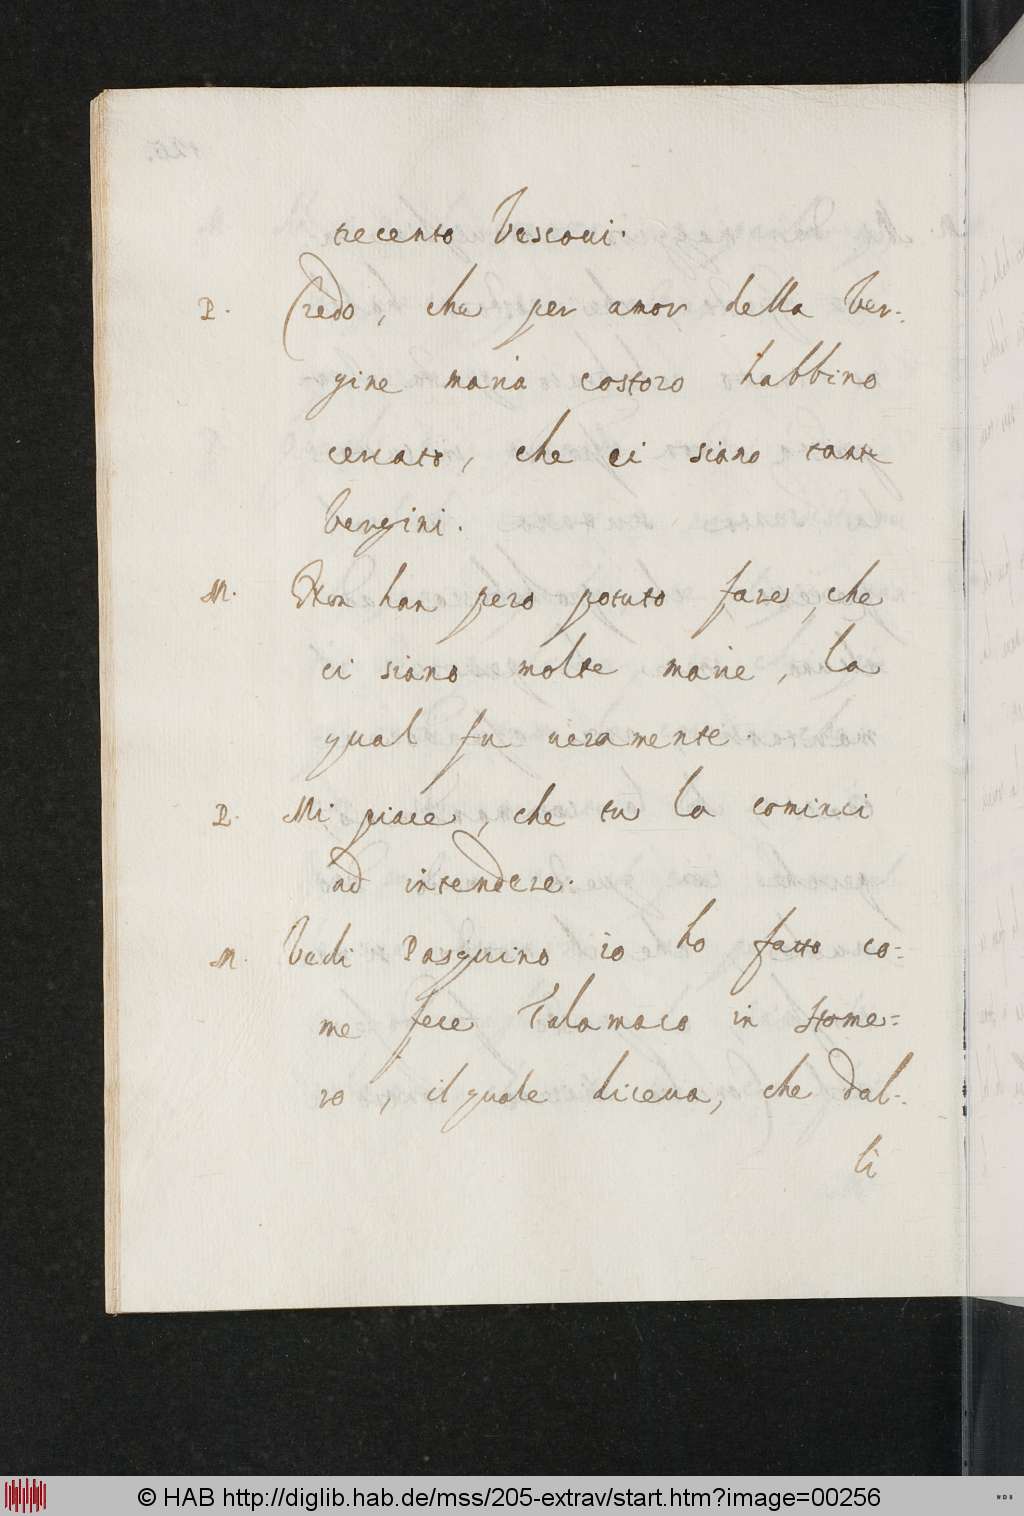 trecento Vescoui.
P. Credo, che per amor della Ver=
gine maria costoro habbino
cercato, che ci siano tante
Vergini.
M. Non han pero potuto fare, che
ci siano molte marie, la
qual fu ueramente.
P. Mi piace, che tu la cominci
ad intendere.
M. Vedi Pasquino io ho fatto co=
me fece Telamaco in Home=
ro, il quale diceua, che dal=
li
© HAB http://diglib.hab.de/mss/205-extrav/start.htm?image=00256